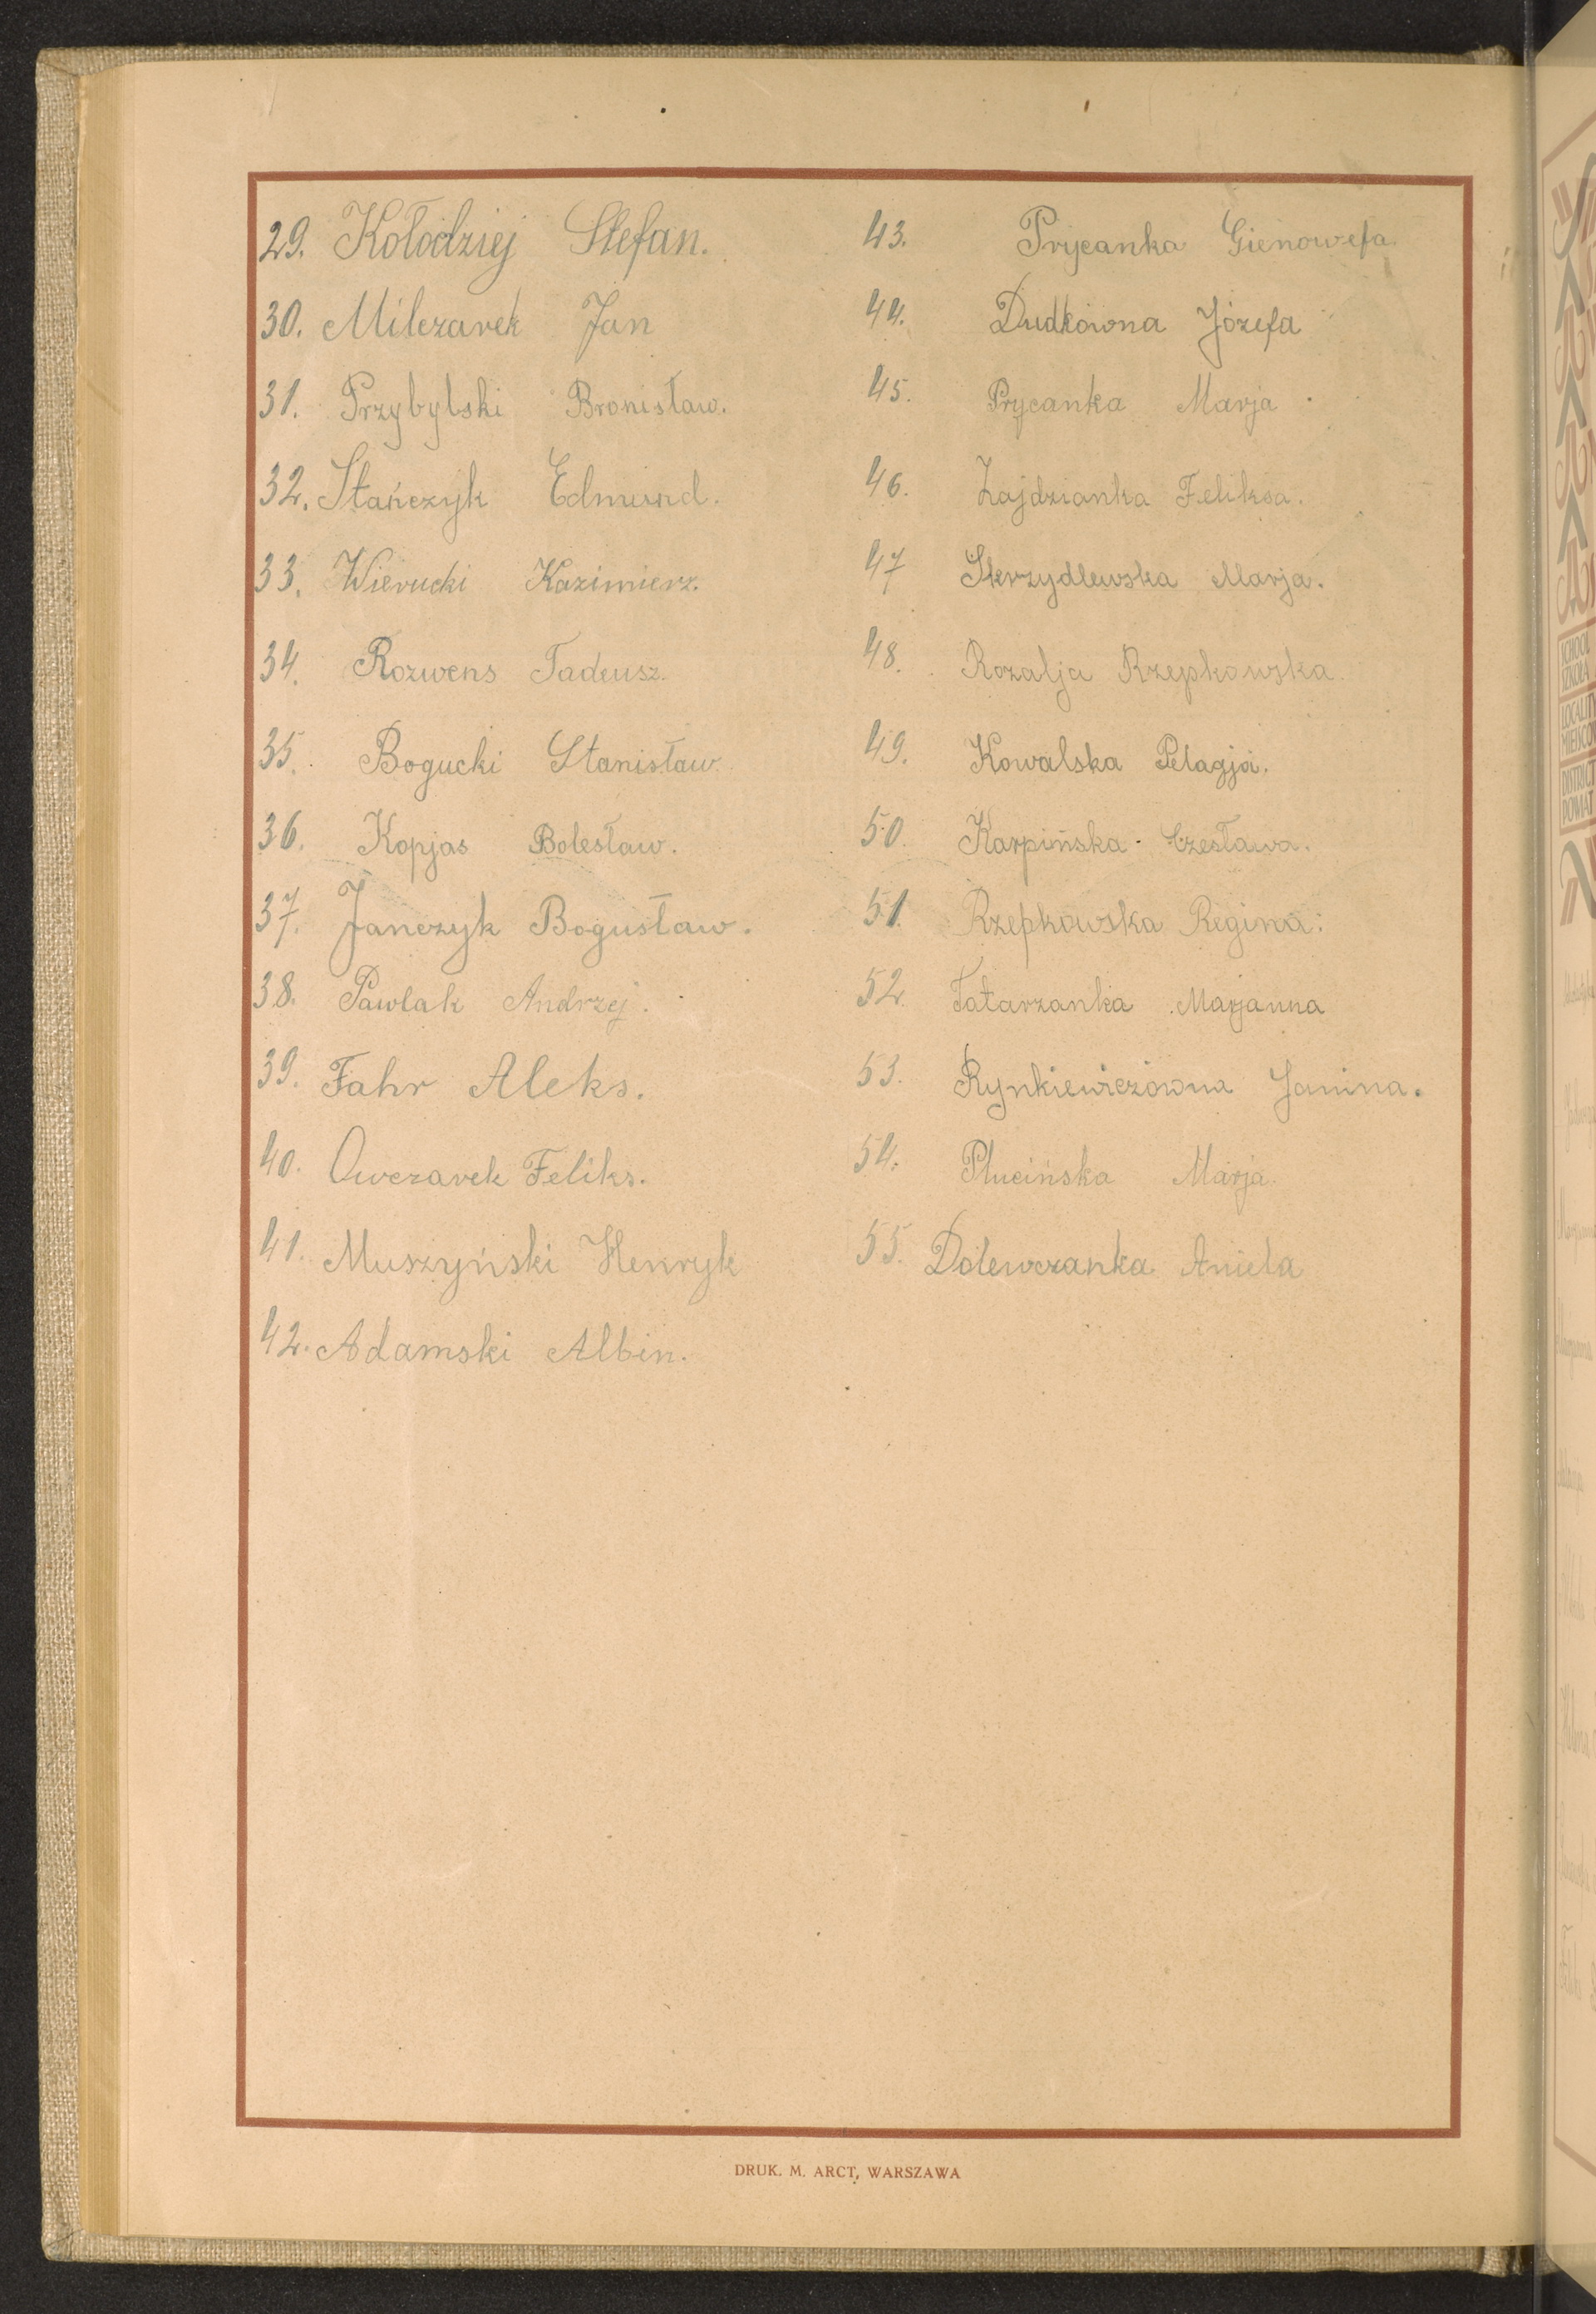 29. Kołodziej Stefan.
30. Milczarek Jan
31. Przybylski Bronisław.
32. Stańczyk Edmund.
33. Wierucki Kazimierz.
34. Rozwens Tadeusz.
35. Bogucki Stanisław.
36. Kopjas Bolesław.
37. Janczyk Bogusław.
38. Pawlak Andrzej.
39. Fahr Aleks.
40. Owczarek Feliks.
41. Muszyński Henryk
42. Adamski Albin.
43. Prycanka Gienowefa.
44. Dudkówna Józefa
45. Prycanka Marja
46. Zajdzianka Feliksa.
47 Skrzydlewska Marja.
48. Rozalja Rzepkowska.
49. Kowalska Pelagja.
50. Karpińska Czesława.
51. Rzepkowska Regina.
52. Tatarzanka Marjanna
53. Rynkiewiczówna Janina.
54. Plucińska Marja.
55. Dolewczanka Aniela
DRUK. M. ARCT, WARSZAWA
SCHOOL
SZKOŁA